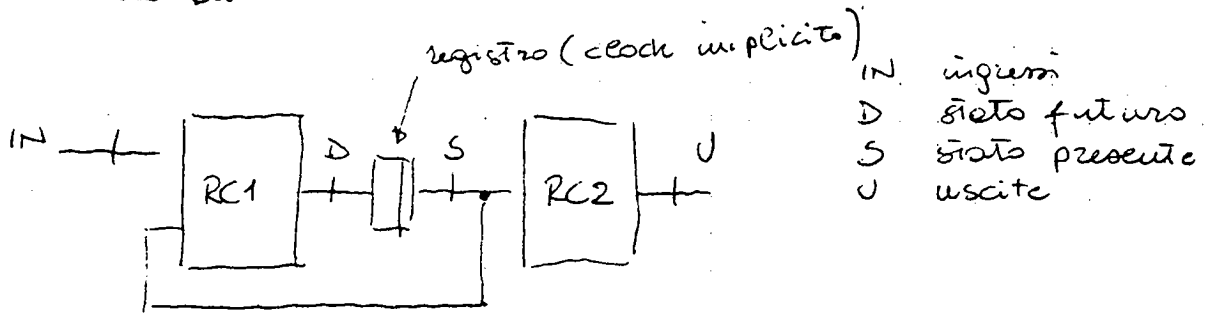 registro (clock implicito)
IN ingressi
D stato futuro
S stato presente
U uscite
IN
RC1
D
S
RC2
U